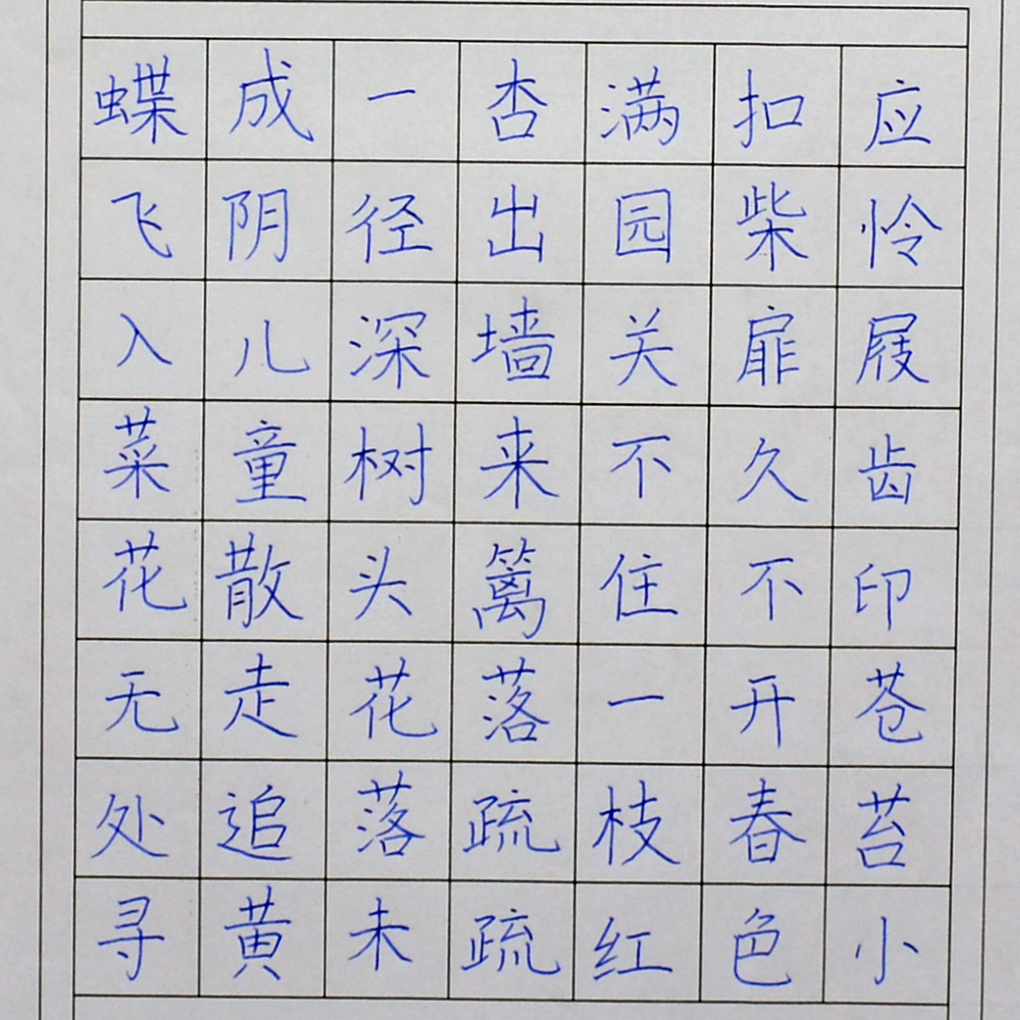 应怜屐齿印苍苔小
扣柴扉久不开春色
满园关不住一枝红
杏出墙来篱落疏疏
一径深树头花落未
成阴儿童散走追黄
蝶飞入菜花无处寻